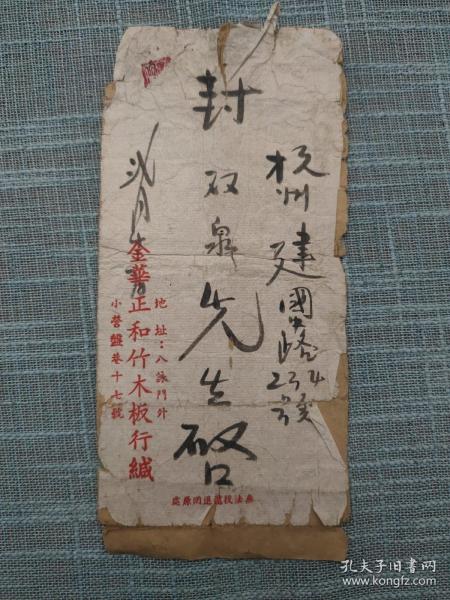 杭州建國中路234號
封砍泉先生啓
地址：八詠門外
金華正和竹木板行緘
小營盤巷十七號
無法投遞退回原處
孔夫子旧书网
www.kongfz.com